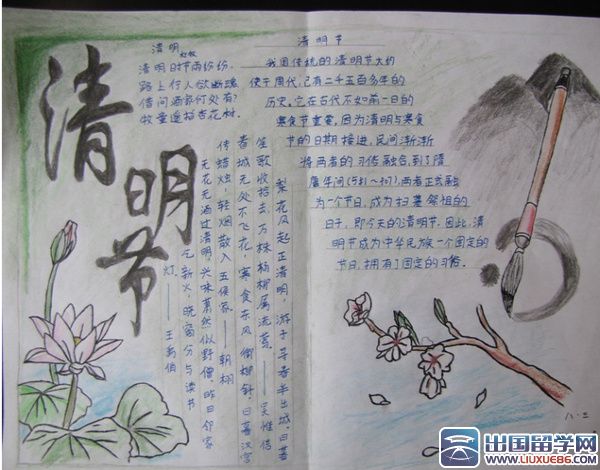 清明节
清明 杜牧
清明时节雨纷纷,
路上行人欲断魂
借问酒家何处有?
牧童遥指杏花村.
清明节
我国传统的清明节大约
使于周代,已有二千五百多年的
历史。它在古代不如前一日的
寒食节重要,因为清明与寒食
节的日期接进,民间渐渐
将两者的习俗融合,到了隋
唐年间(581~907),两者正式融
为一个节日,成为扫墓祭祖的
日子,即今天的清明节。因此,清
明节成为中华民族一个固定的
节日,拥有了固定的习俗。
梨花风起正清明,游子寻春半出城,日暮
笙歌收拾去,万株杨柳属流莺。——吴惟信
春城无处不飞花,寒食东风御柳斜,日暮汉宫
传蜡烛,轻烟散入五侯家——
无花无酒过清明,兴味萧然似野僧,昨日邻家
乞新火,晓窗分与读书
灯.——王禹偁
出国留学网
WWW.LIUXUE86.COM